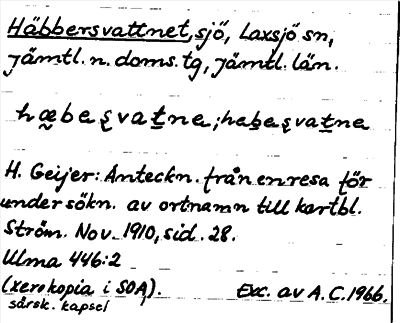 Häbbersvattnet, sjö, Laxsjö sn,
Jämtl. n. doms. tg, Jämtl. län.
hæ̰bęʂvat̲ne; hab̲ęʂvat̲ne
H. Geijer: Anteckn. från en resa för
undersökn. av ortnamn till kartbl.
Ström. Nov. 1910, sid. 28.
Ulma 446:2
(xerokopia i SOA). Exc. av A.C. 1966.
särsk. kapsel